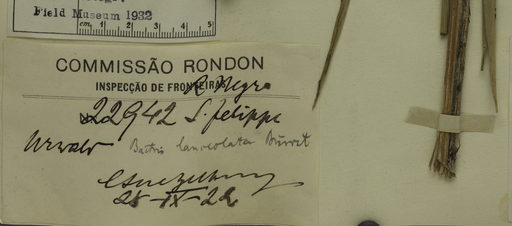 Field Museum 1932
cm. 1 2 3 4 5
COMMISSÃO RONDON
INSPECÇÃO DE FRONTEIRAS
R. Negro
22942 S. felippe
Urwald Bactris lanceolata Burret
28-IX-22